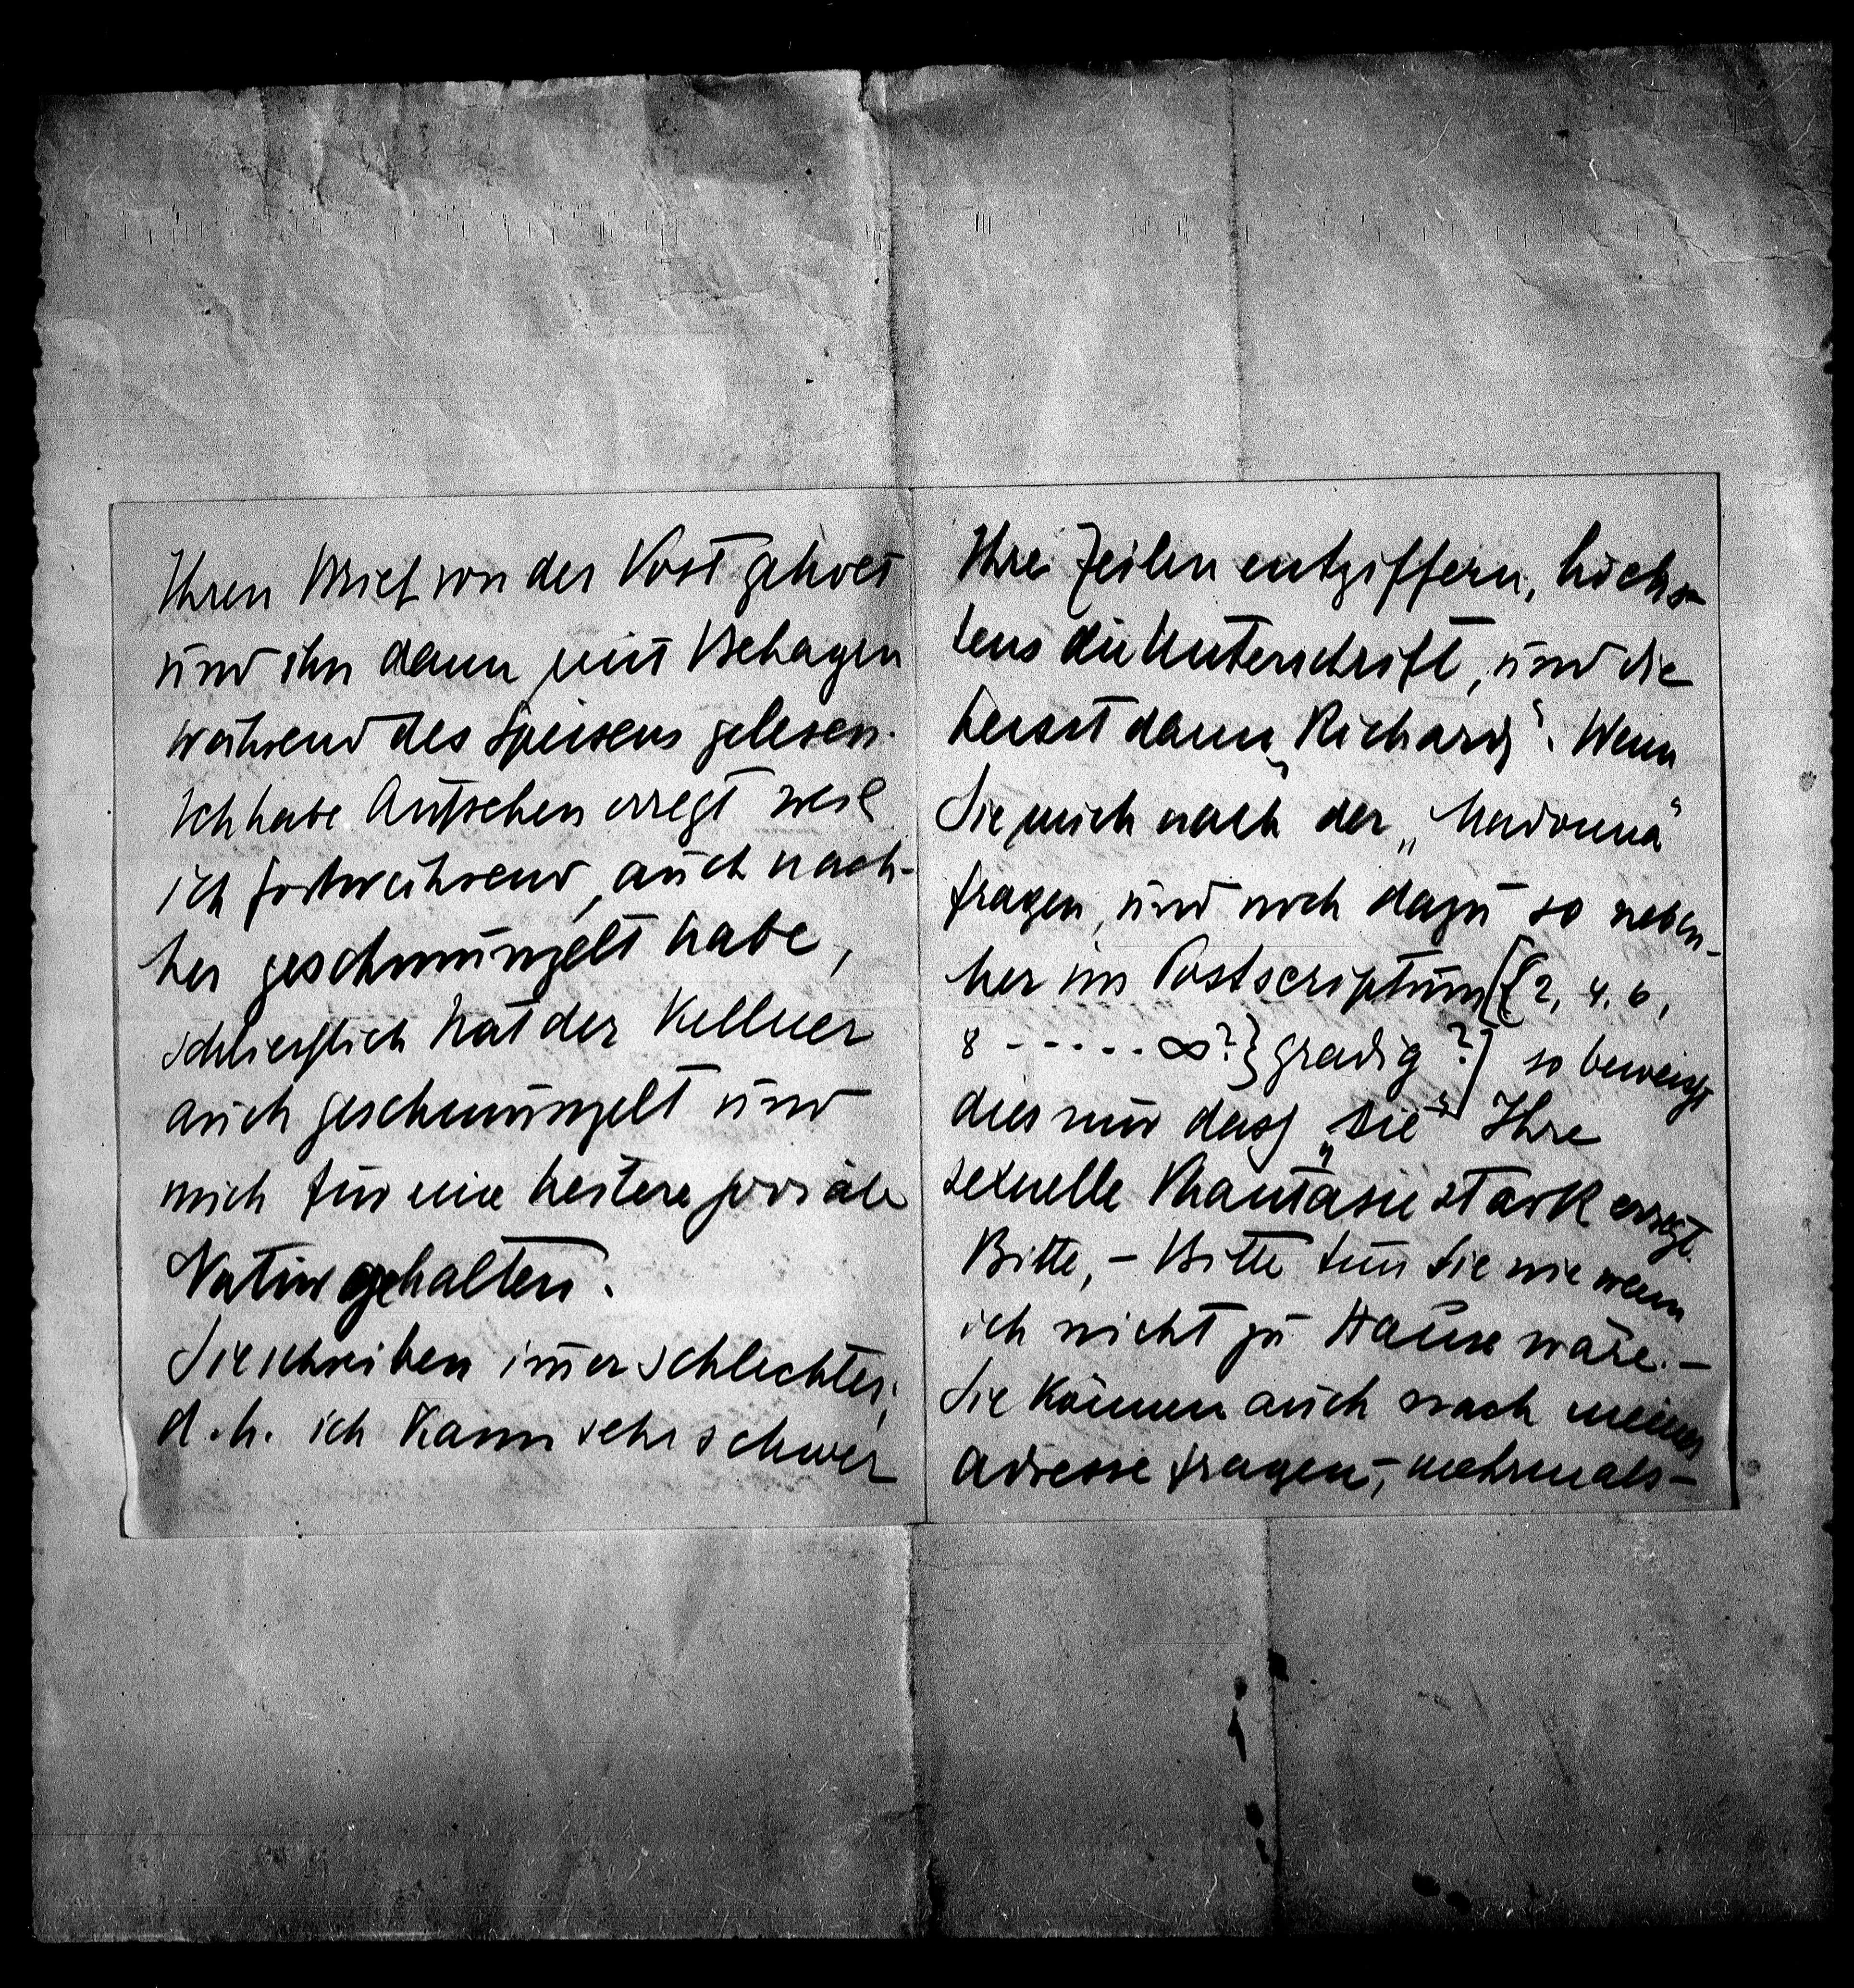 Ihren Brief von der Post geholt
und ihn dann mit Behagen
während des Speisens gelesen.
Ich habe Aufsehen erregt weil
ich fortwährend, auch nach-
her geschmunzelt habe,
schliesslich hat der Kellner
auch geschmunzelt und
mich für eine heitere joviale
Natur gehalten.
Sie schreiben im̄er schlechter;
d. h. ich kann sehr schwer
Ihre Zeilen entziffern, höchs-
tens die Unterschrift, und die
heisst dann „Richard“. Wenn
Sie mich nach der „Madonna“
fragen, und noch dazu so neben-
her im Postscriptum [{2, 4, 6,
8 - - - - - ∞?} gradig?] so beweist
dies nur dass „sie“ Ihre
sexuelle Phantasie stark erregt.
Bitte, – Bitte tun Sie nie wenn
ich nicht zu Hause wäre. –
Sie können auch nach meiner
Adresse fragen, – mehrmals –